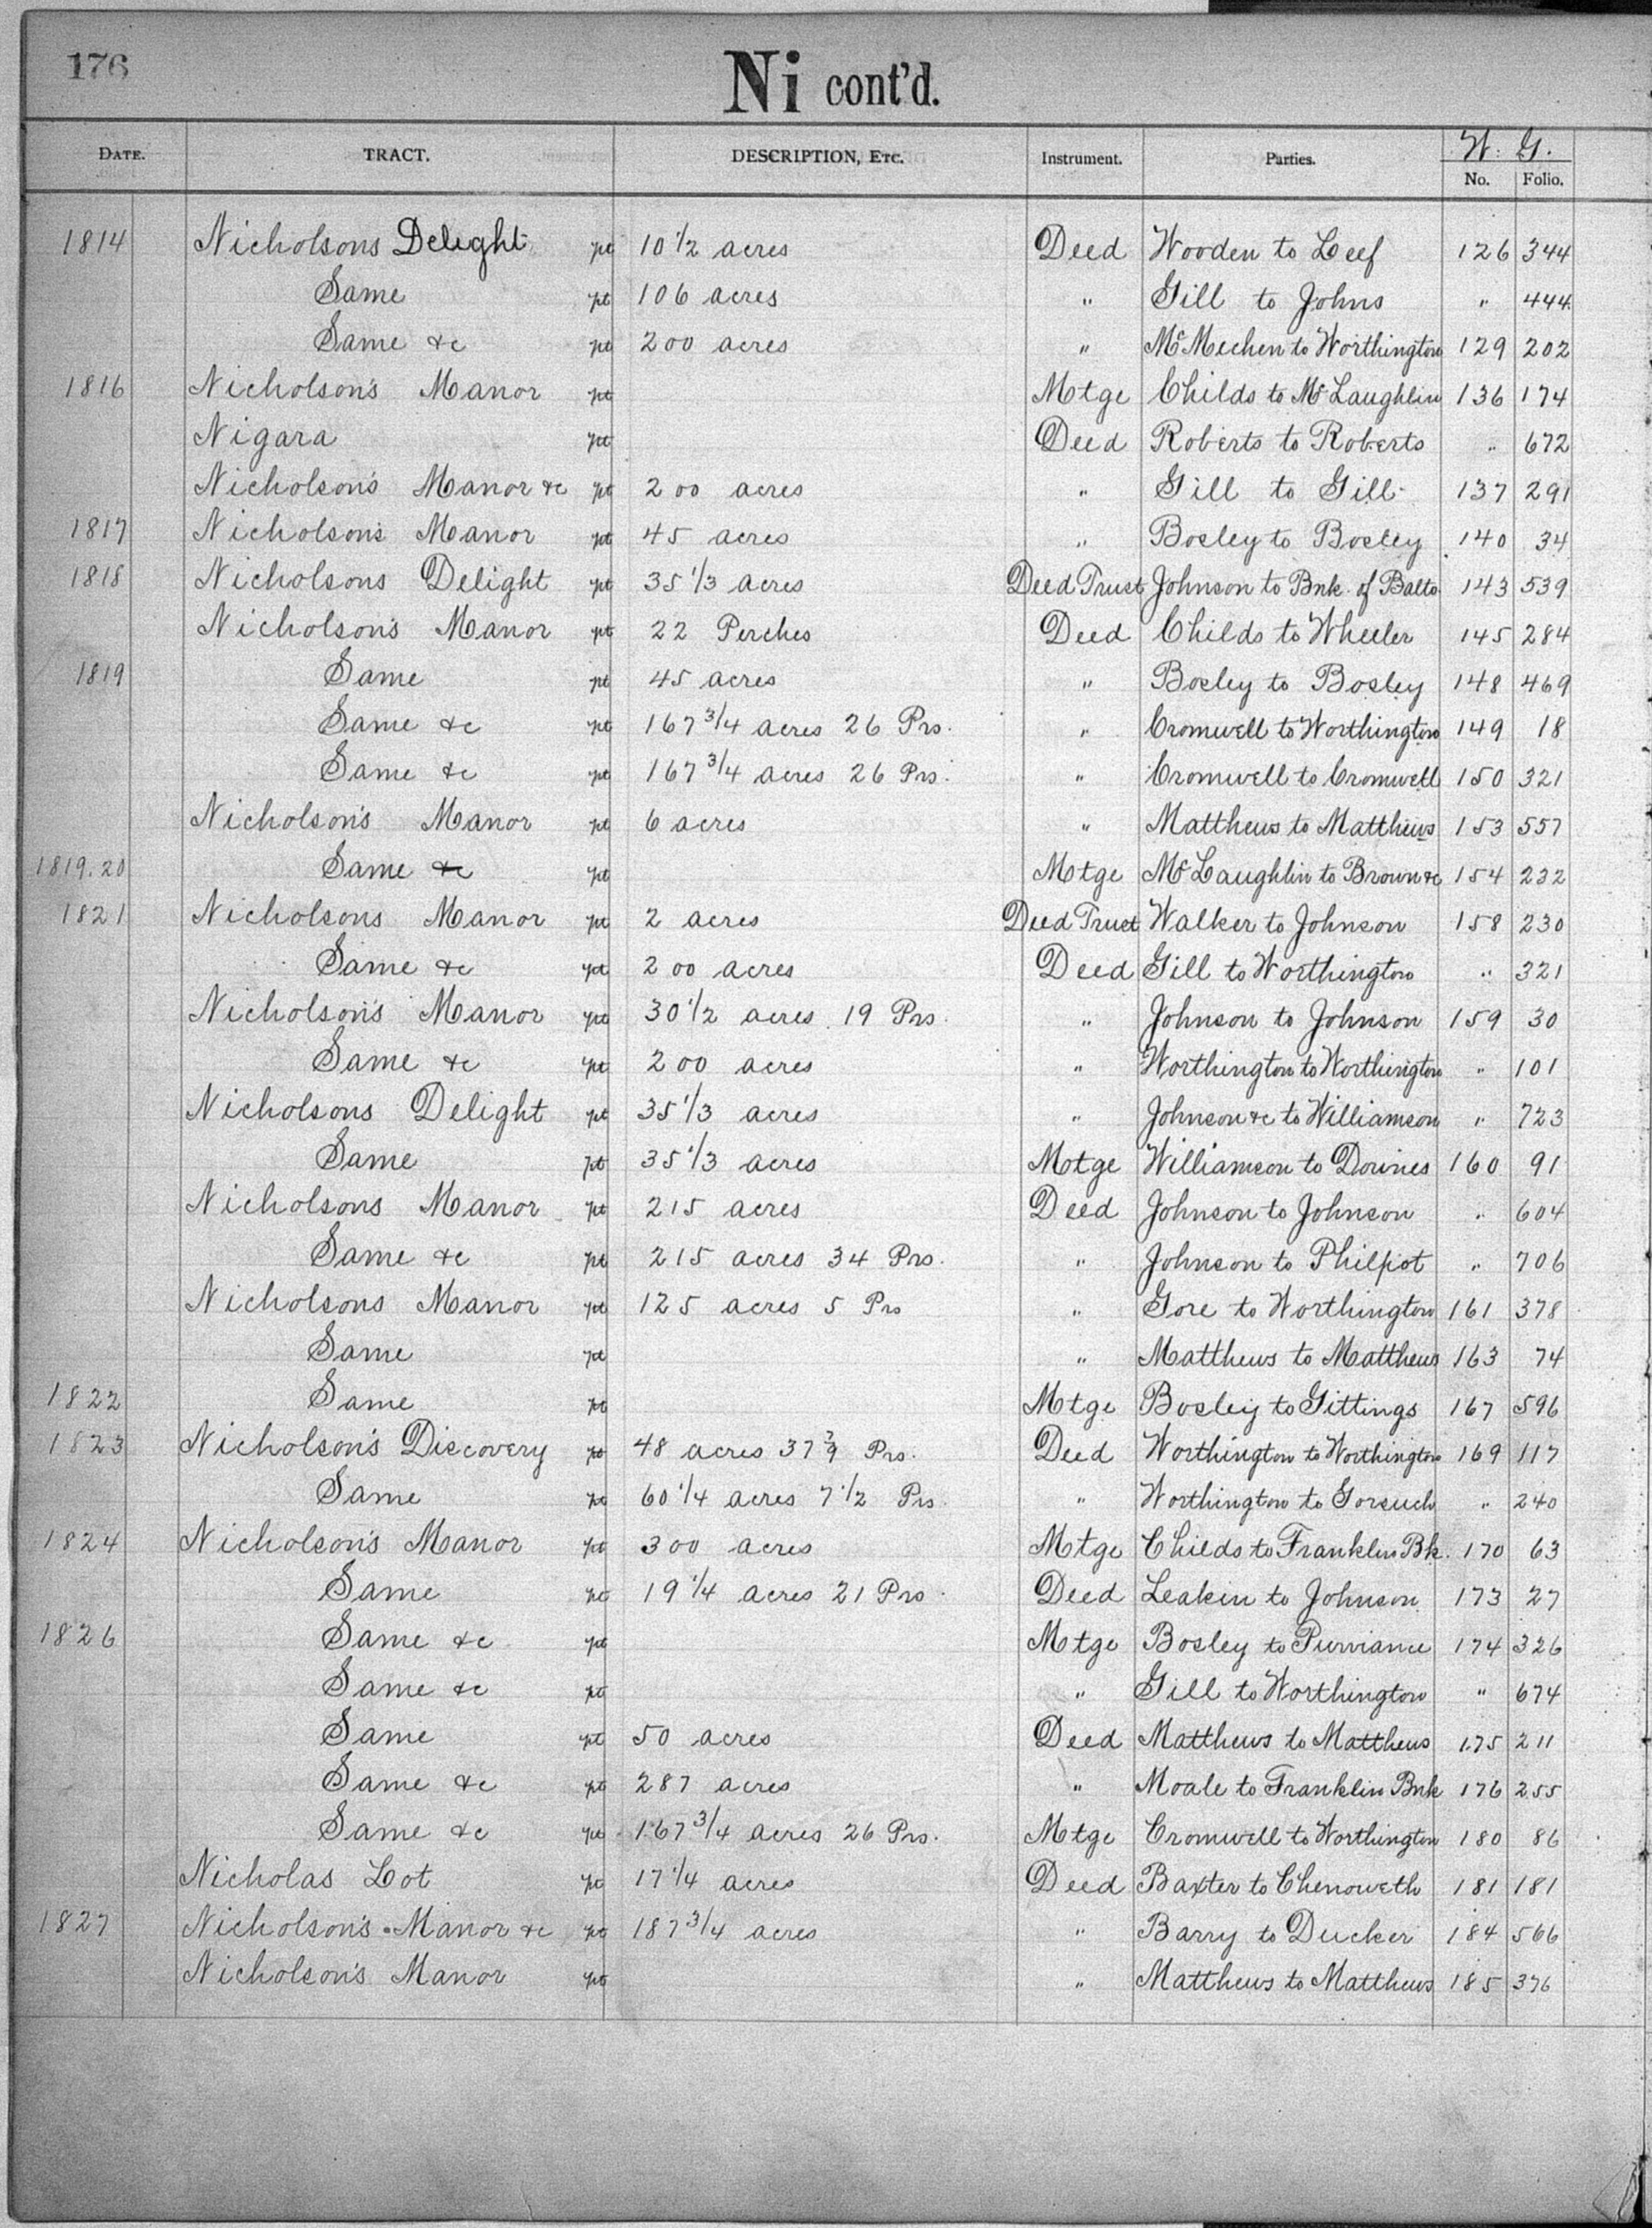 176
Ni cont'd.
DATE. TRACT. DESCRIPTION, ETC. Instrument. Parties. W. G.
No. Folio.
1814 Nicholsons Delight pt 10 1/2 acres Deed Wooden to Leef 126 344
Same pt 106 acres " Gill to Johns " 444
Same &c pt 200 acres " McMechen to Worthington 129 202
1816 Nicholson's Manor pt Motge Childs to McLaughlin 136 174
Nigara pt Deed Roberts to Roberts " 672
Nicholson's Manor &c pt 200 acres " Gill to Gill 137 291
1817 Nicholson's Manor pt 45 acres " Bosley to Bosley 140 34
1818 Nicholsons Delight pt 35 1/3 acres Deed Trust Johnson to Bnk. of Balto. 143 539
Nicholson's Manor pt 22 Perches Deed Childs to Wheeler 145 284
1819 Same pt 45 acres " Bosley to Bosley 148 469
Same &c pt 167 3/4 acres 26 Prs. " Cromwell to Worthington 149 18
Same &c pt 167 3/4 acres 26 Prs. " Cromwell to Cromwell 150 321
Nicholson's Manor pt 6 acres " Matthews to Matthews 153 557
1819.20 Same &c pt Motge McLaughlin to Brown &c 154 232
1821 Nicholsons Manor pt 2 acres Deed Trust Walker to Johnson 158 230
Same &c pt 200 acres Deed Gill to Worthington " 321
Nicholson's Manor pt 30 1/2 acres 19 Prs. " Johnson to Johnson 159 30
Same &c pt 200 acres " Worthington to Worthington " 101
Nicholsons Delight pt 35 1/3 acres " Johnson &c to Williamson " 723
Same pt 35 1/3 acres Motge Williamson to Downes 160 91
Nicholsons Manor pt 215 acres Deed Johnson to Johnson " 604
Same &c pt 215 acres 34 Prs. " Johnson to Philpot " 706
Nicholsons Manor pt 125 acres 5 Prs " Gore to Worthington 161 378
Same pt " Matthews to Matthews 163 74
1822 Same pt Motge Bosley to Gittings 167 596
1823 Nicholson's Discovery pt 48 acres 37 Prs. Deed Worthington to Worthington 169 117
Same pt 60 1/4 acres 7 1/2 Prs. " Worthington to Gorsuch " 240
1824 Nicholson's Manor pt 300 acres Motge Childs to Franklin Bk. 170 63
Same pt 19 1/4 acres 21 Prs Deed Leakin to Johnson 173 27
1826 Same &c pt Motge Bosley to Purviance 174 326
Same &c pt " Gill to Worthington " 674
Same pt 50 acres Deed Matthews to Matthews 175 211
Same &c pt 287 acres " Moale to Franklin Bnk 176 255
Same &c pt 167 3/4 acres 26 Prs. Motge Cromwell to Worthington 180 86
Nicholas Lot pt 17 1/4 acres Deed Baxter to Chenoweth 181 181
1827 Nicholson's Manor &c pt 187 3/4 acres " Barry to Ducker 184 566
Nicholson's Manor pt " Matthews to Matthews 185 376